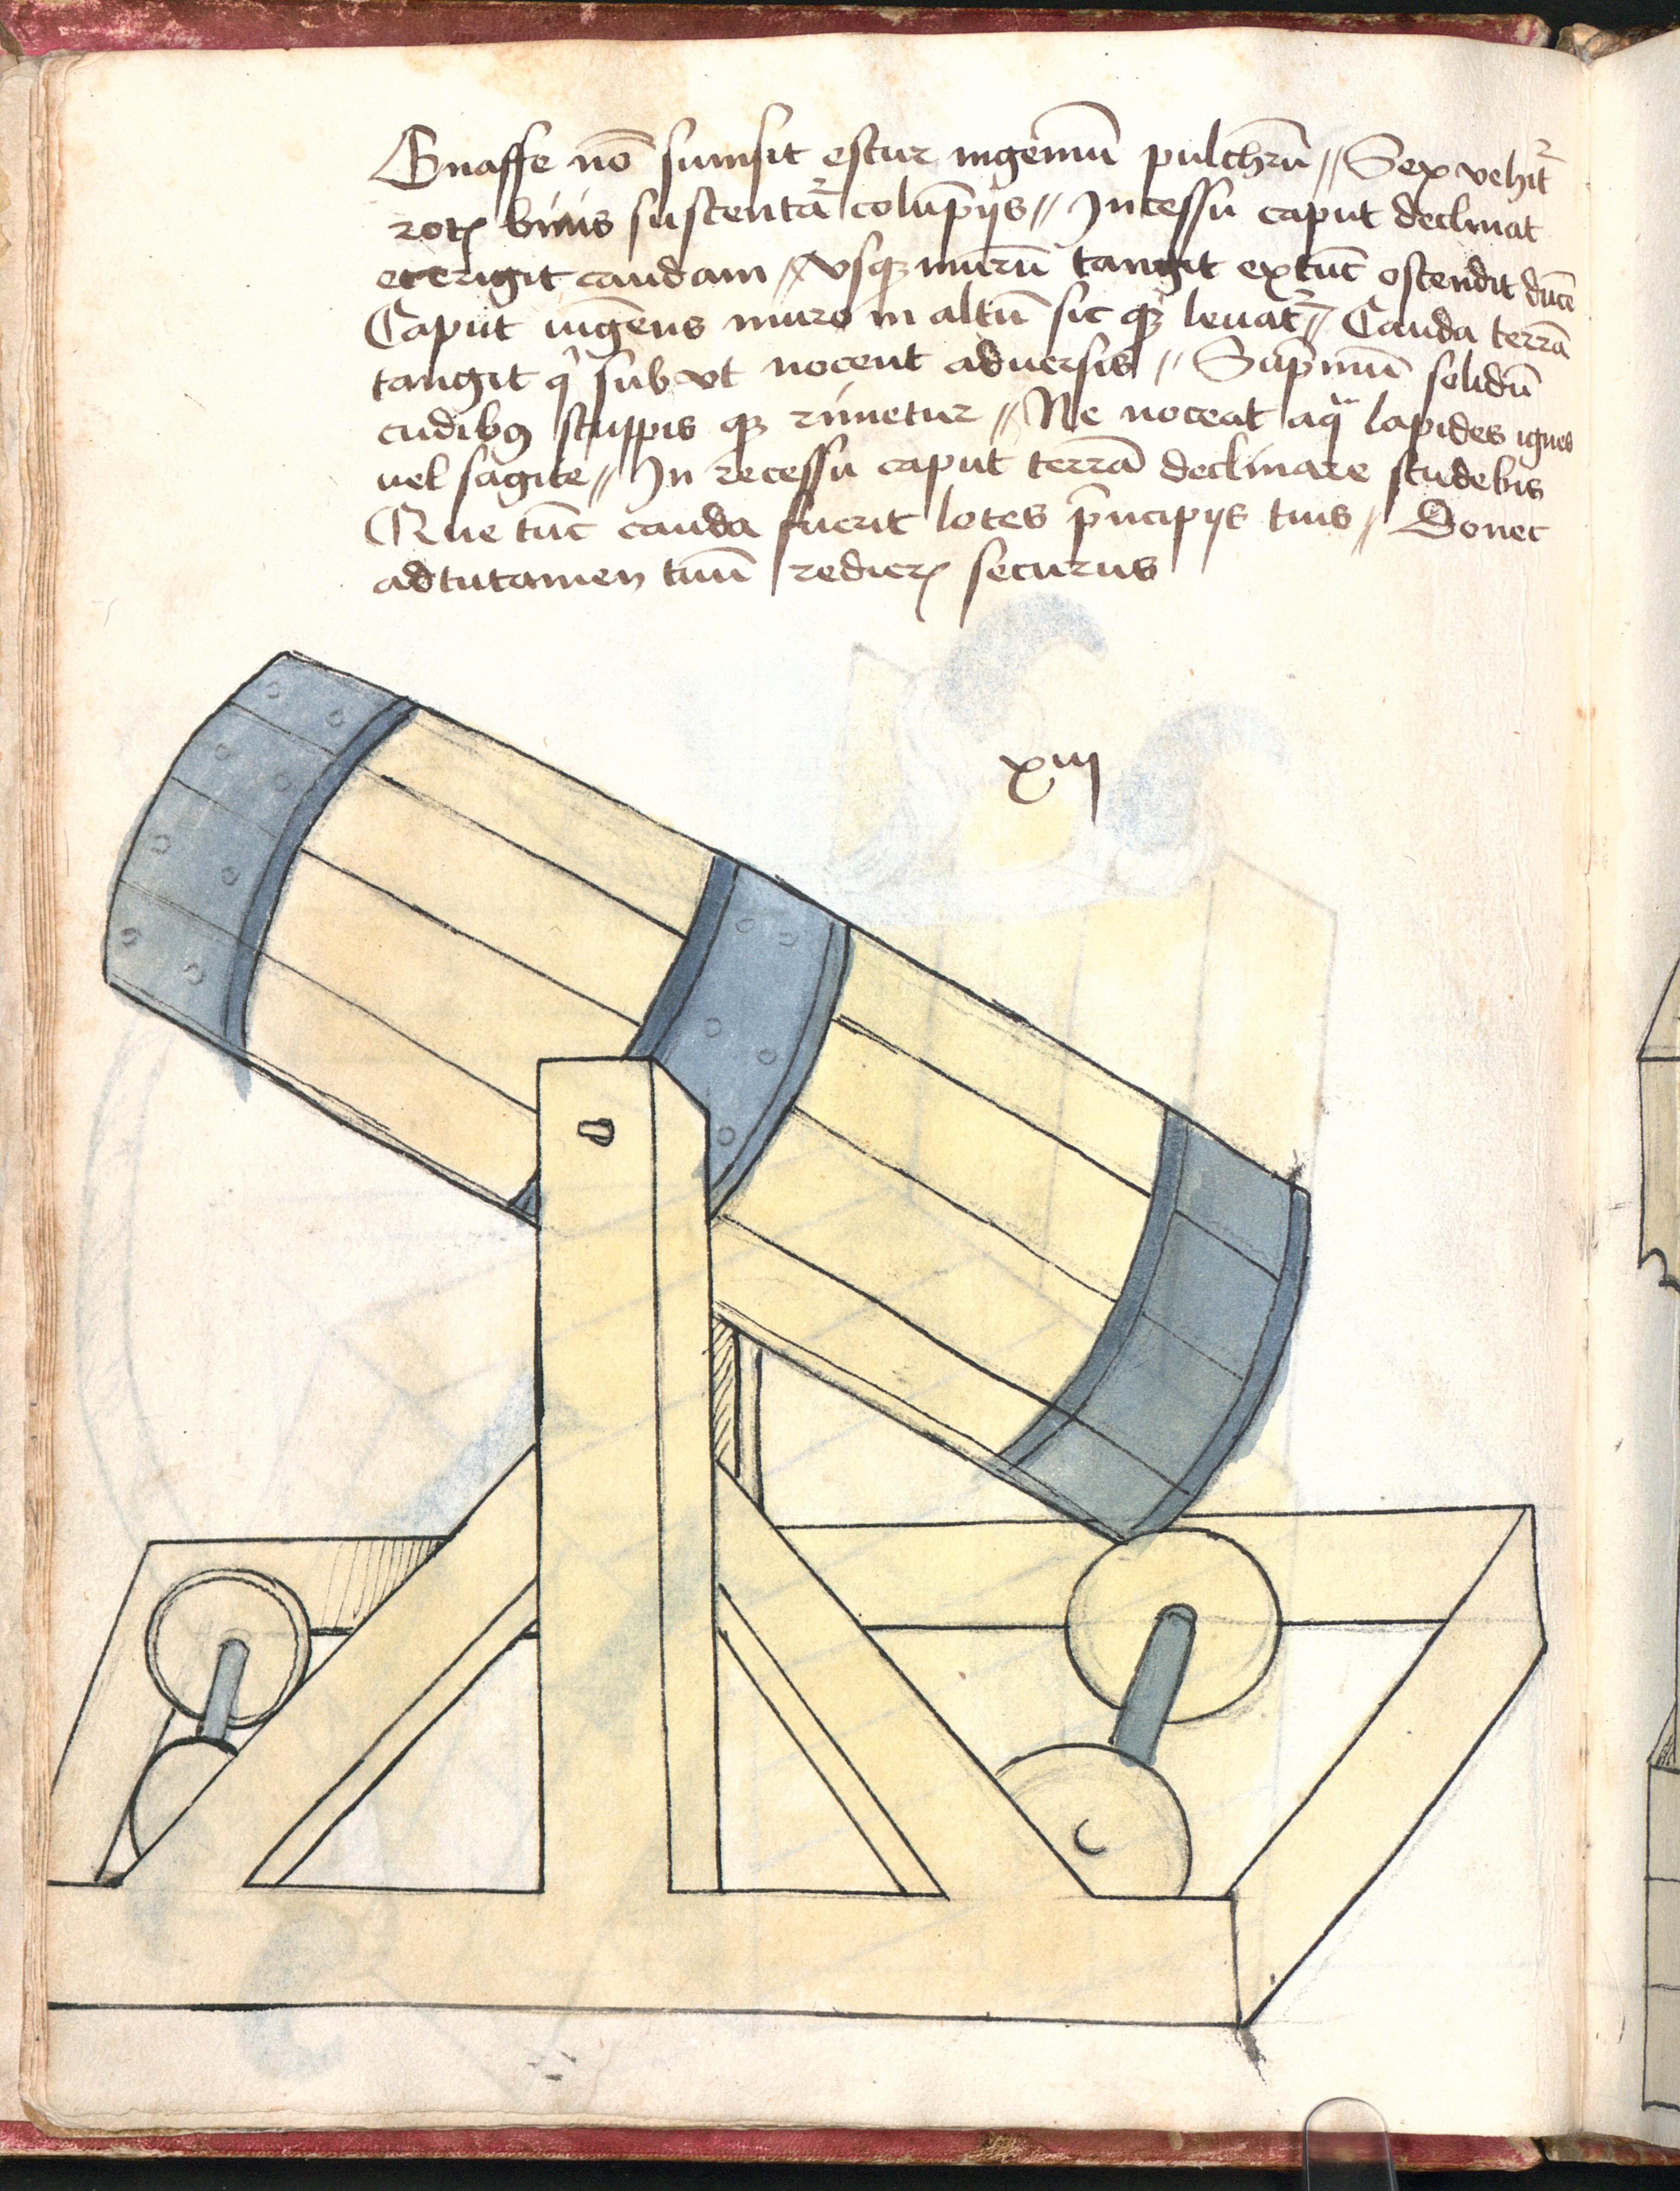 Gnasse nō sumsit estur ingeniū pulchrū // Sex vehit᷑
rotꝭ binis sustentat᷑ colūpnijs // Incessu caput declinat
et erigit caudam // vsqꝫ murū tangit extūc ostendit ducē
Caput ingēns muro in altū sic qꝫ leuat᷑ // Cauda terrā
tangit q᷑ sub vt nocent aduersis // Sup̄mū solidū
cudibꝯ stuppis qꝫ rimetur // Ne noceat aqͣ lapides ignes
uel sagite // In recessu caput terrā declinare studebis
Que tūc cauda fuerit lotes p̄ncipijs tuis // Donec
ad tutamen tuū redierꝭ securus
xiij